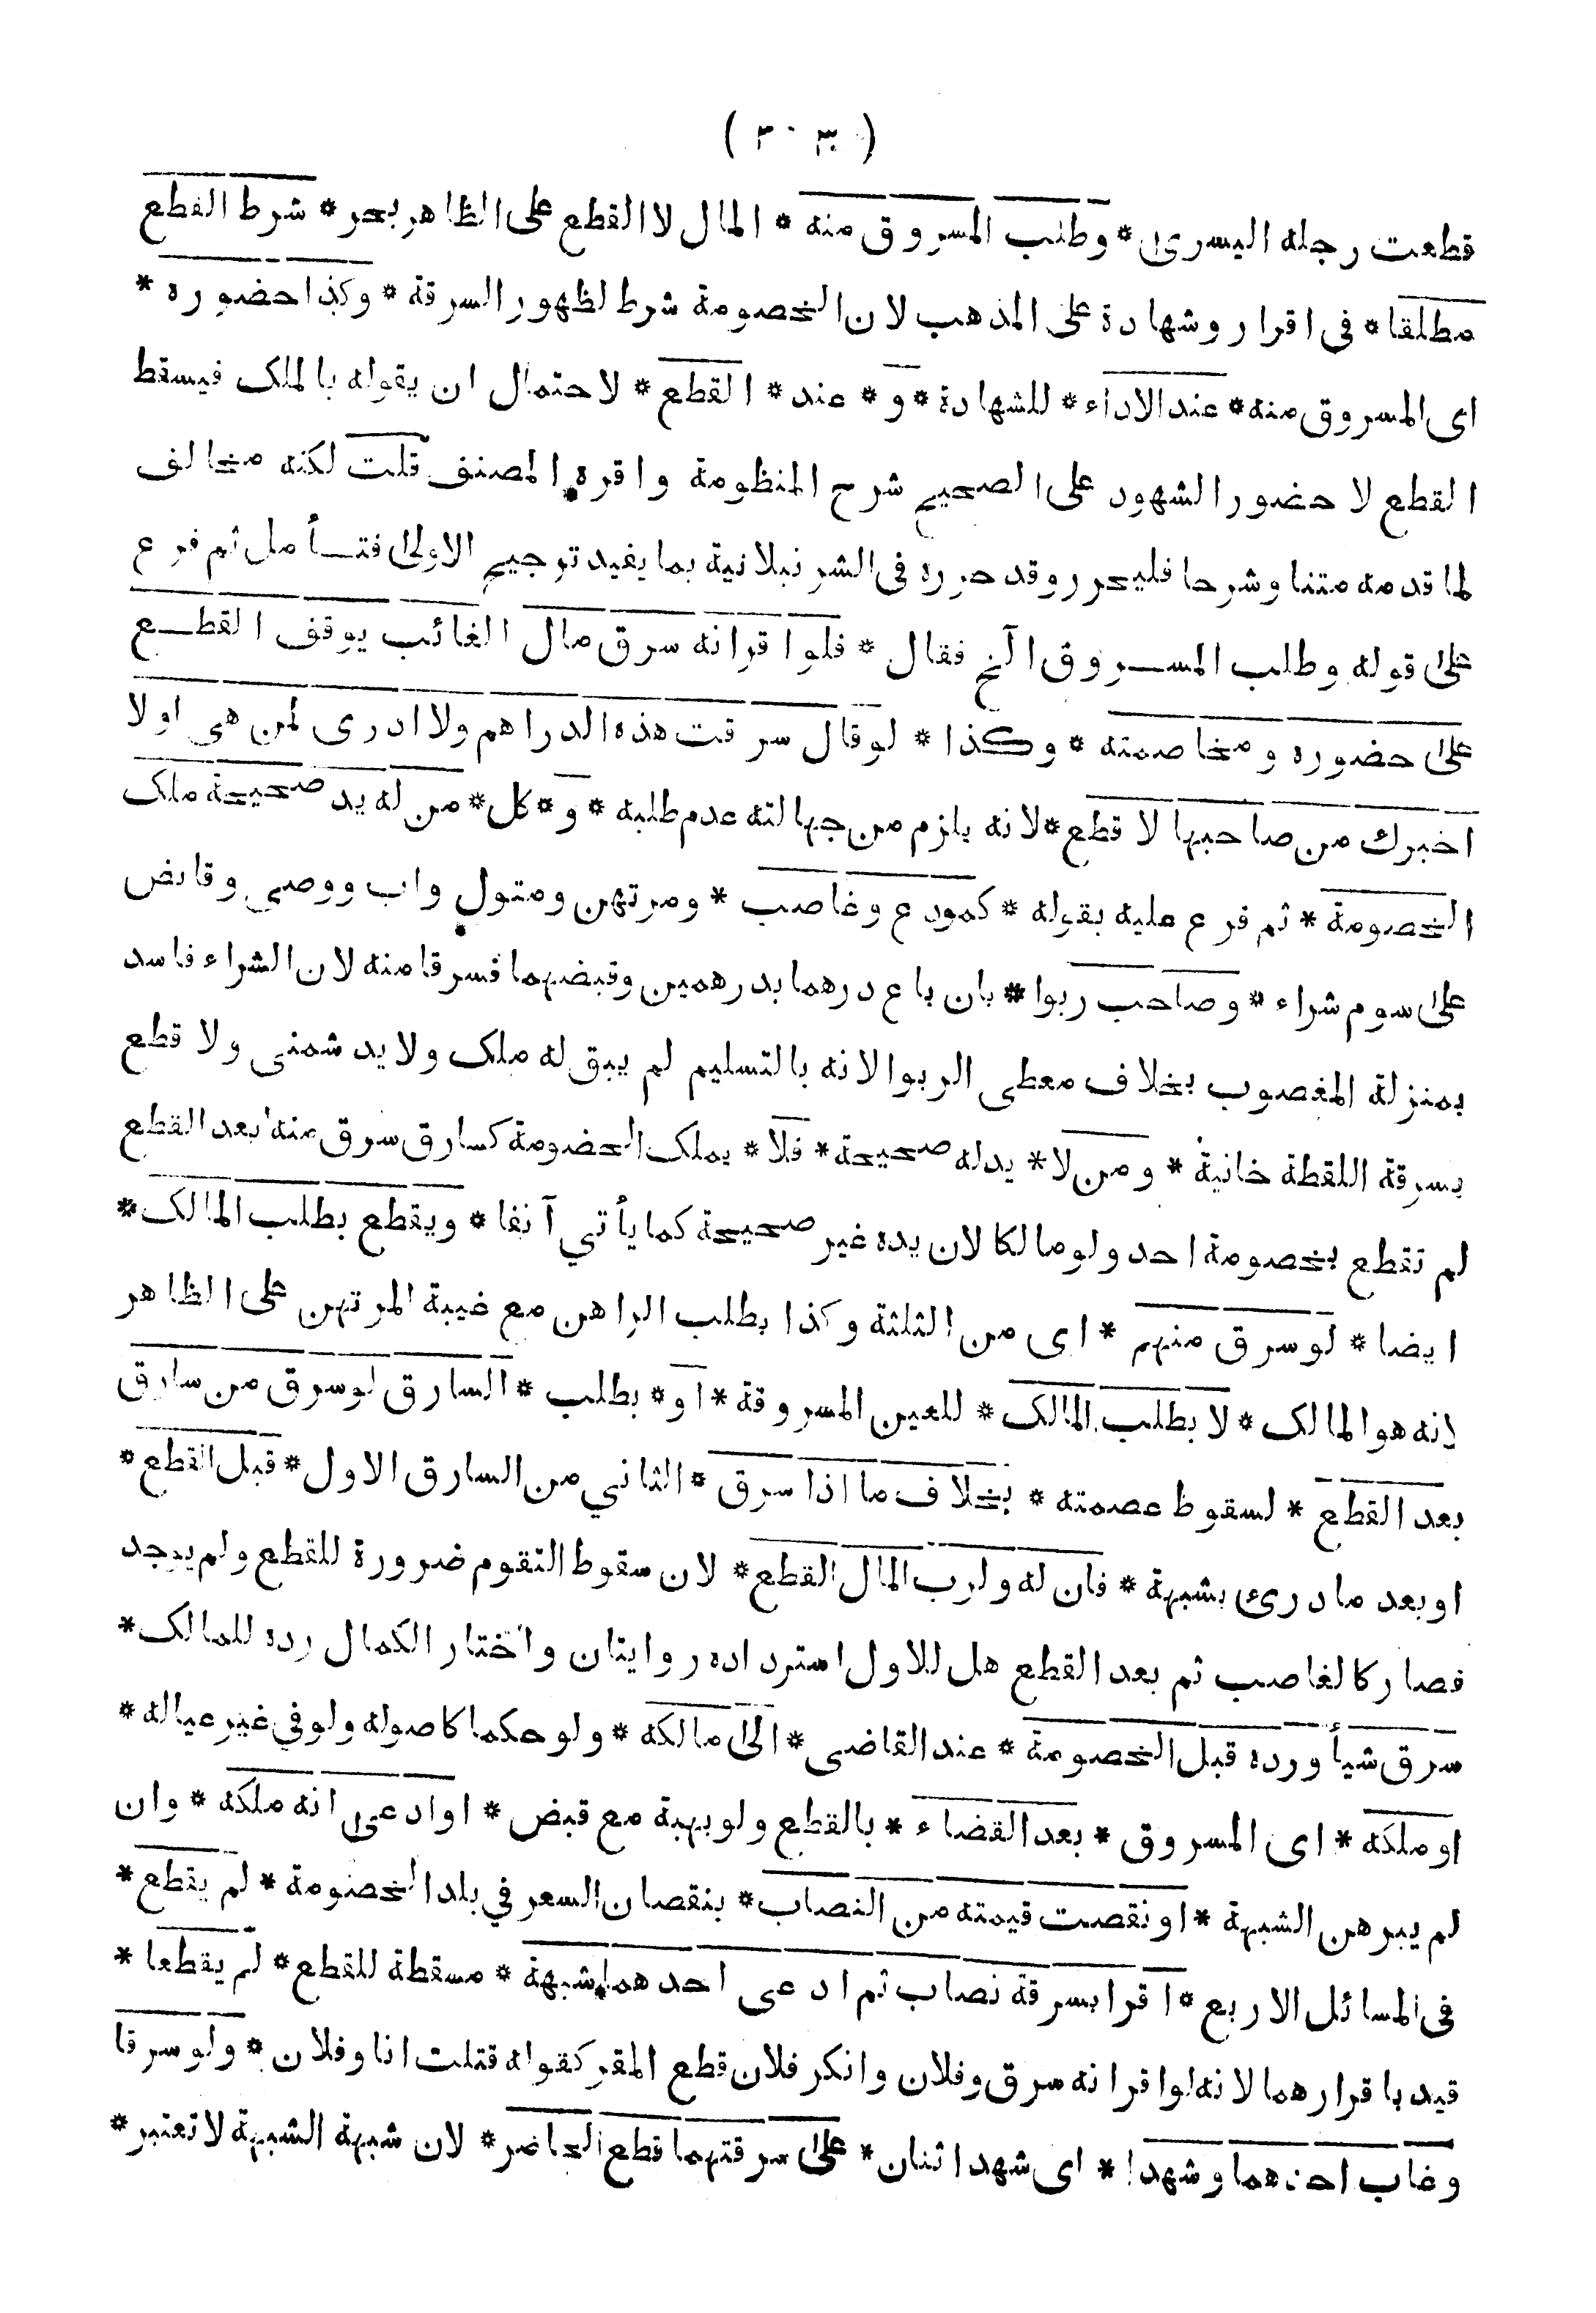 ( ٣٠٣ )
قطعت رجله اليسرى * وطلب المسروق منه * المال لا القطع على الظاهر بحر * شرط القطع
مطلقا * فى اقرار وشهادة على المذهب لان الخصومة شرط لظهور السرقة * وكذا حضوره *
اى المسروق منه * عند الاداء * للشهادة * و * عند * القطع * لاحتمال ان يقوله بالملك فيسقط
القطع لا حضور الشهود على الصحيح شرح المنظومة واقره المصنف قلت لكنه مخالف
لما قدمه متنا وشرحا فليحرر وقد حرره فى الشرنبلانية بما يفيد ترجيح الاولى فتأمل ثم فرع
على قوله وطلب المسروق الخ فقال * فلو اقر انه سرق مال الغائب يوقف القطع
على حضوره ومخاصمته * وكذا * لو قال سرقت هذه الدراهم ولا ادرى لمن هى اولا
اخبرك من صاحبها لا قطع * لانه يلزم من جهالته عدم طلبه * و * كل * من له يد صحيحة ملك
الخصومة * ثم فرع عليه بقوله * كمودع وغاصب * ومرتهن ومتول واب ووصى وقابض
على سوم شراء * وصاحب ربوا * بان باع درهما بدرهمين وقبضهما فسرقا منه لان الشراء فاسد
بمنزلة المغصوب بخلاف معطى الربوا لانه بالتسليم لم يبق له ملك ولا يد شمنى ولا قطع
بسرقة اللقطة خانية * ومن لا * يدله صحيحة * فلا * يملك الخصومة كسارق سرق منه بعد القطع
لم تقطع بخصومة احد ولو مالكا لان يده غير صحيحة كما يأتي آنفا * ويقطع بطلب المالك *
ايضا * لو سرق منهم * اى من الثلثة وكذا بطلب الراهن مع غيبة المرتهن على الظاهر
لانه هو المالك * لا بطلب المالك * للعين المسروقة * او * بطلب * السارق لو سرق من سارق
بعد القطع * لسقوط عصمته * بخلاف ما اذا سرق * الثاني من السارق الاول * قبل القطع *
او بعد ما درئ بشبهة * فان له ولرب المال القطع * لان سقوط التقوم ضرورة للقطع ولم يوجد
فصار كالغاصب ثم بعد القطع هل للاول استرداده روايتان واختار الكمال رده للمالك *
سرق شيأ ورده قبل الخصومة * عند القاضى * الى مالكه * ولو حكما كاصوله ولو في غير عياله *
او ملكه * اى المسروق * بعد القضاء * بالقطع ولو بهبة مع قبض * او ادعى انه ملكه * وان
لم يبرهن الشبهة * او نقصت قيمته من النصاب * بنقصان السعر في بلد الخصومة * لم يقطع *
فى المسائل الاربع * اقرا بسرقة نصاب ثم ادعى احدهما شبهة * مسقطة للقطع * لم يقطعا *
قيد باقرارهما لانه لو اقر انه سرق وفلان وانكر فلان قطع المقر كقوله قتلت انا وفلان * ولو سرقا
وغاب احدهما وشهد ا * اى شهد اثنان * على سرقتهما قطع الحاضر * لان شبهة الشبهة لا تعتبر *